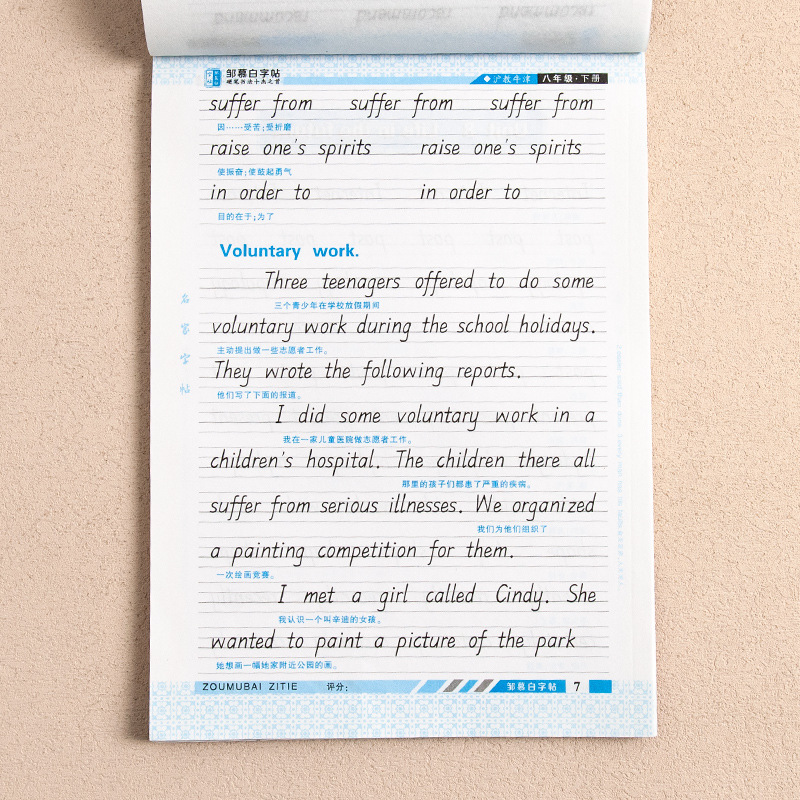 邹慕白字帖
硬笔书法十杰之首
◆沪教牛津 八年级·下册
suffer from suffer from suffer from
因……受苦;受折磨
raise one's spirits raise one's spirits
使振奋;使鼓起勇气
in order to in order to
目的在于;为了
Voluntary work.
Three teenagers offered to do some
三个青少年在学校放假期间
voluntary work during the school holidays.
主动提出做一些志愿者工作。
They wrote the following reports.
他们写了下面的报道。
I did some voluntary work in a
我在一家儿童医院做志愿者工作。
children's hospital. The children there all
那里的孩子们都患了严重的疾病。
suffer from serious illnesses. We organized
我们为他们组织了
a painting competition for them.
一次绘画竞赛。
I met a girl called Cindy. She
我认识一个叫辛迪的女孩。
wanted to paint a picture of the park
她想画一幅她家附近公园的画。
名家字帖
ZOUMUBAI ZITIE 评分: 邹慕白字帖 7